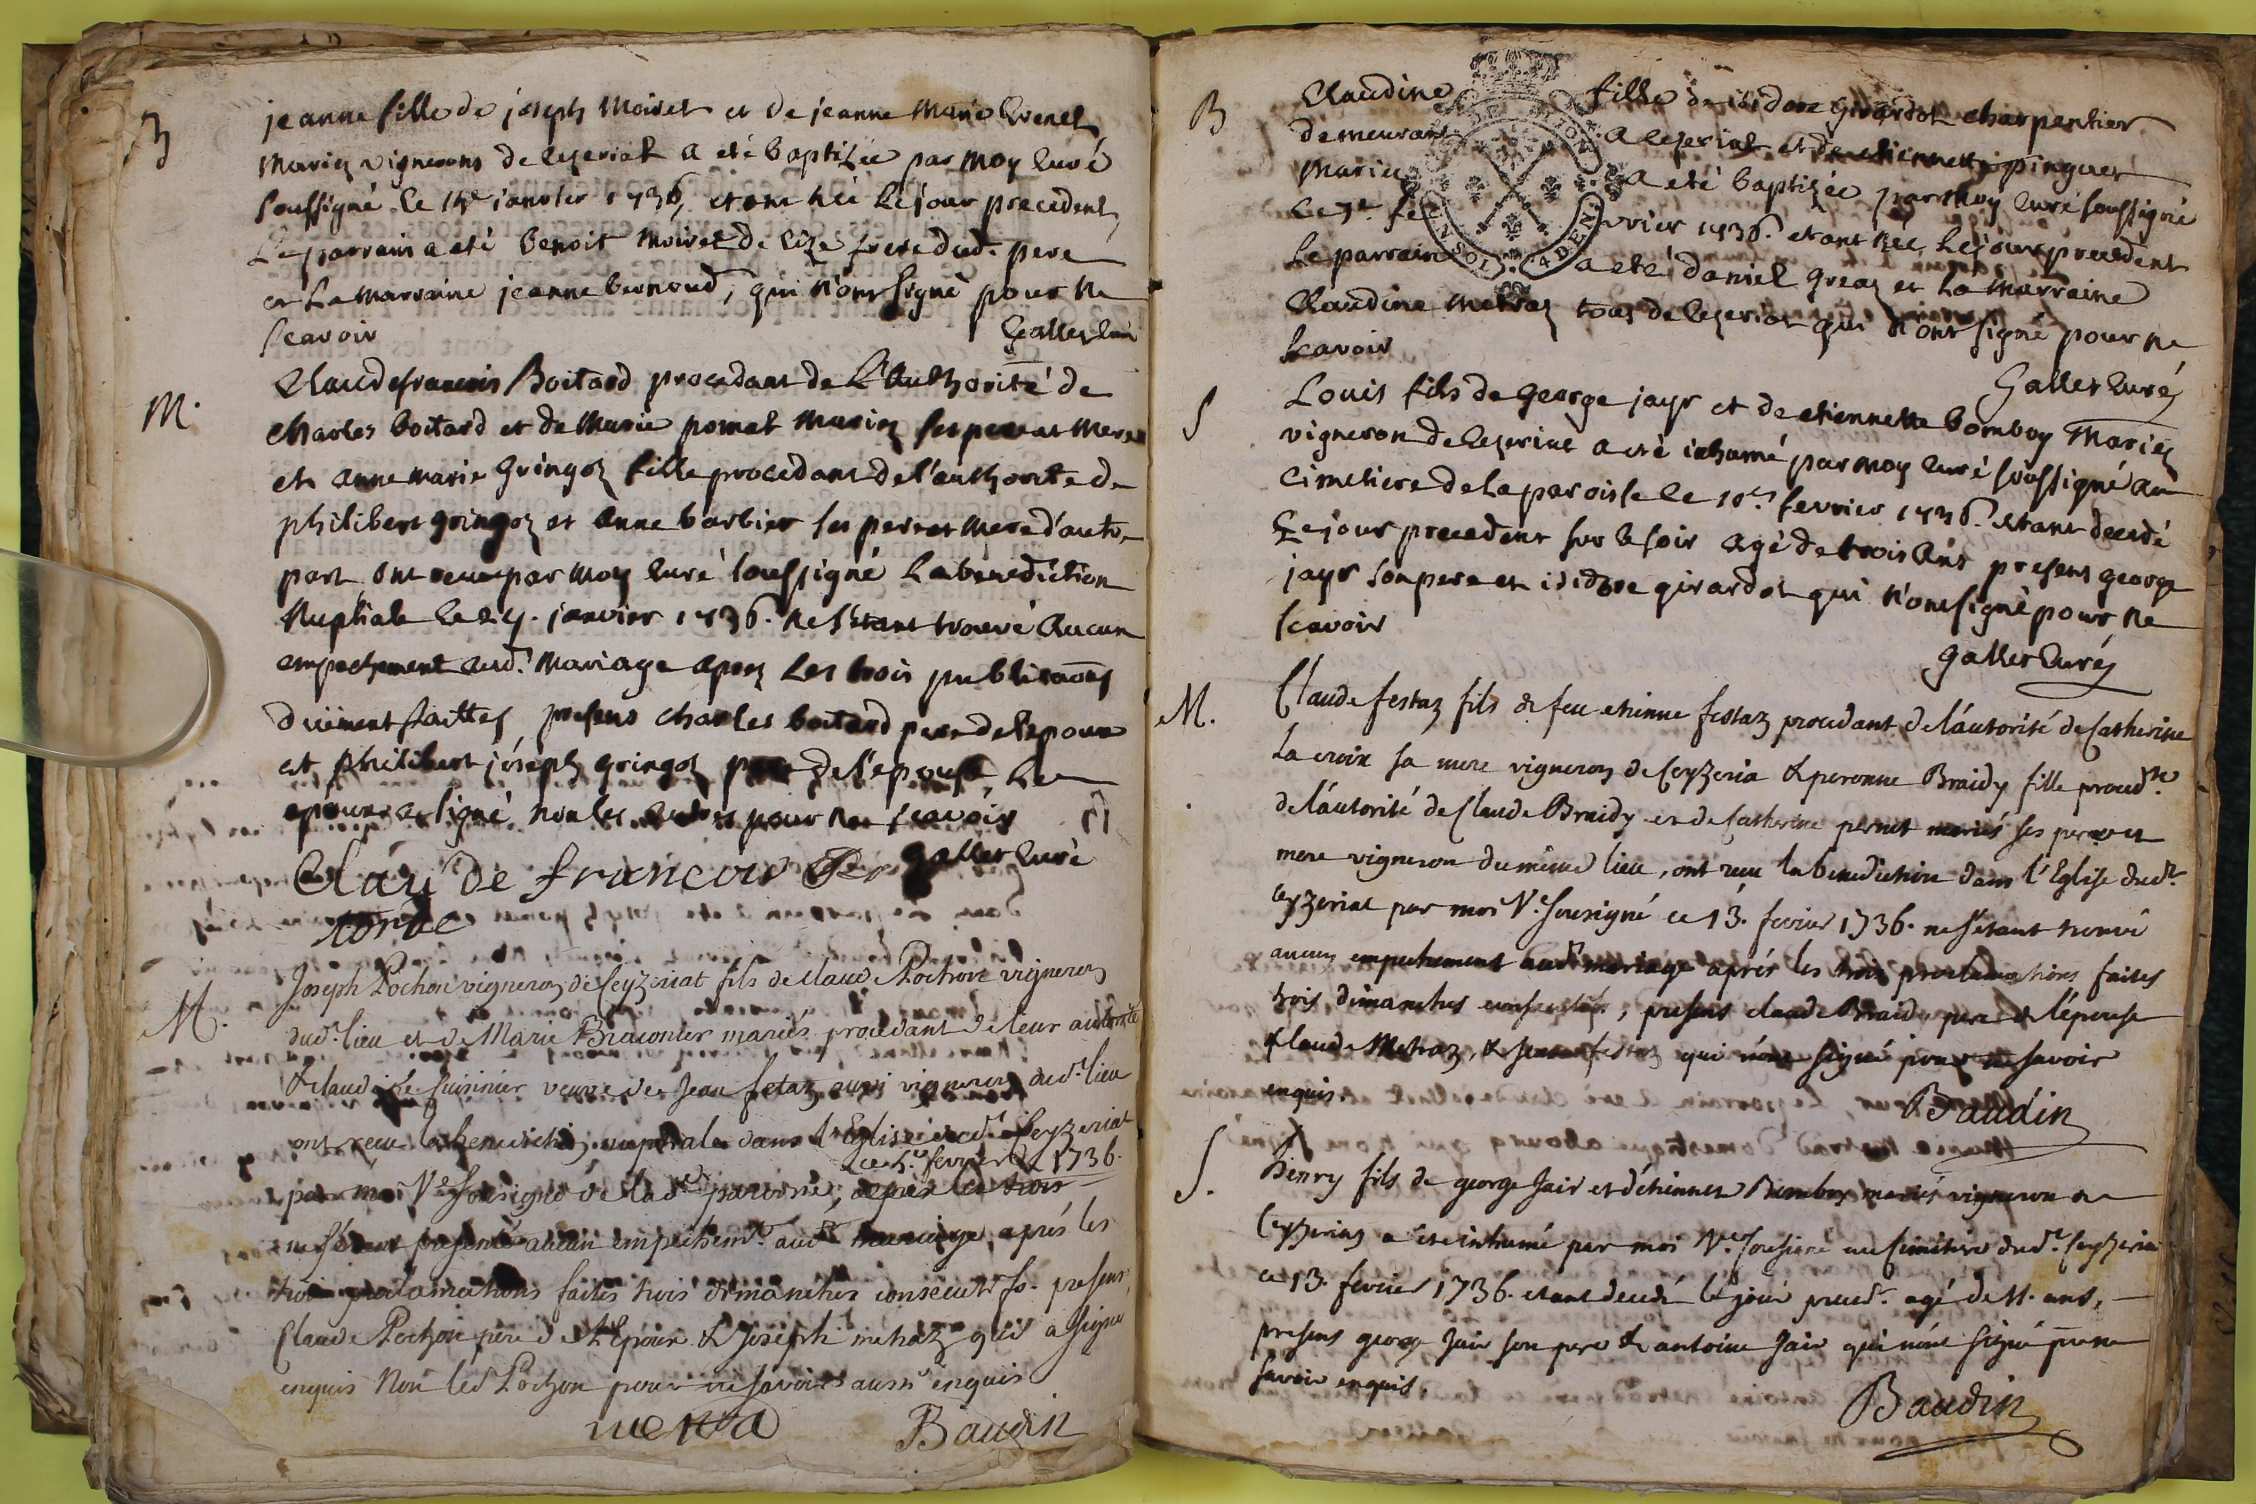 B
jeanne fille de joseph Moiret et de jeanne Marie
Mariez vignerons de Ceseriat a eté baptisée par Moy Curé
soussigné le janvier 1736, etant née le jour precedent,
Le parrain a eté benoit Moiret de Cize frere dud. pere
et La Marraine jeanne bernoud, qui n'ont signé pour ne
scavoir
Gallet Curé
M.
Claude françois Boitard procedant de L'Authorité de
charles boitard et de Marie pomat Mariez ses pere et Mere
et anne Marie Gringoz fille procedant de l'authorite de
philibert gringoz et anne barbier ses pere et mere d'autre
part ont receu par Moy Curé soussigné La benediction
Nuptiale le janvier 1736. ne s'etant trouvé Aucun
empechement aud. Mariage apres Les trois publicaons
duëment faittes, presens charles boitard pere de l'epoux
et philibert joseph gringoz pere de l'epouse, Le
epoux a signé non les autres pour ne scavoir
Gallet Curé
Claude francois
M.
Joseph Pochon vigneron de Ceyzeriat fils de Claude Pochon vigneron
dud. lieu et de Marie Braconier mariés procedant de leur autorité
& Claudine Cuisinier veuve de Jean fetaz aussi vigneron dud. lieu
ont receu la benediction nuptiale dans l'Eglise dud. Ceyzeriat
ce fevrier 1736.
par moi Ve. sousigné de lad. paroisse, apres les trois
ne s'etant presenté aucun empechemt. aud. mariage, aprés les
trois proclamations faites trois dimanches consecutifs. presens
Claude Pochon pere de l'Epoux & Joseph metraz qui a signé
enquis Non led Pochon pour ne savoir aussi enquis
Baudin
B
Claudine fille de isidore Girardot charpentier
demeurant a Ceseriat et de etiennette pinguet
Mariez a eté baptizée par Moy Curé soussigné
Le fevrier 1736. etant née Le jour precedent
Le parrain a eté daniel greaz et La Marraine
Claudine Metraz tous de Ceseriat qui n'ont signé pour ne
scavoir
Gallet Curé
S
Louis fils de George jayr et de etiennette bomboy Mariez
vigneron de Ceseriat a eté inhumé par Moy Curé soussigné au
Cimetiere de La paroisse Le 10e. fevrier 1736. etant decedé
Le jour precedent sur le soir agé de trois Ans presens george
jayr son pere et isidore girardot qui n'ont signé pour ne
scavoir
Gallet Curé
M.
Claude festaz fils de feu etienne festaz procedant de l'autorité de Catherine
La croix sa mere vigneron de Ceyzeria & peronne Braidy fille proced.te
de l'autorité de Claude Braidy et de Catherine pernet mariés ses pere et
mere vigneron du même lieu, ont receu la benediction dans l'Eglise dud.
Ceyzeriat par moi Ve. sousigné ce 13. fevrier 1736. ne s'étant trouvé
aucun empechement aud. mariage aprés les trois proclamations faites
trois dimanches consecutifs, presens claude Braidy pere de l'épouse
Claude Metraz, & festaz qui n'ont signé pour ne savoir
enquis.
Baudin
S.
henry fils de george Jair et d'étiennet Bomboy mariés vigneron de
Ceyzeriaz a eté inhumé par moi Ve. sousigné au cimetiere dud. Ceyzeria
ce 13. fevrier 1736. etant decedé le jour preced. agé de 11. ans,
presens george Jair son pere & antoine Jair qui n'ont signé pr. ne
savoir enquis.
Baudin